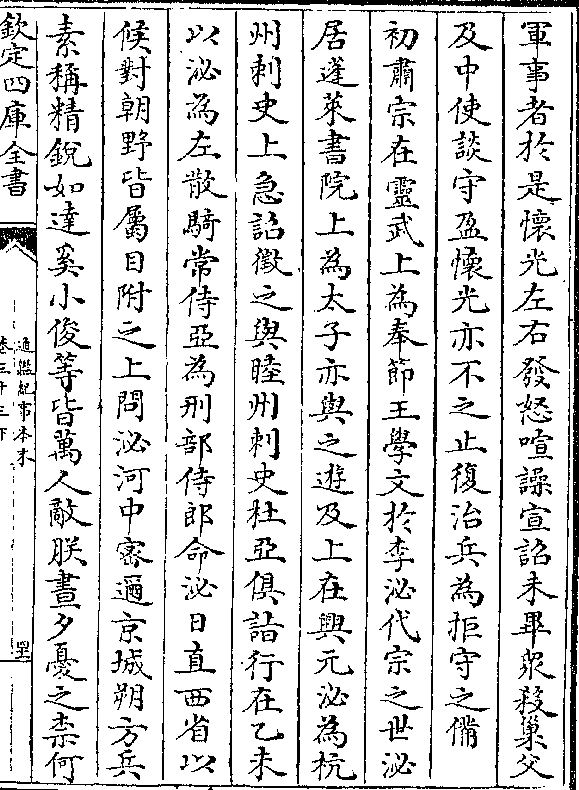 軍事者於是懷光左右發怒喧譟宣詔未畢衆殺巢父
及中使談守盈懷光亦不之止復治兵為拒守之備
初肅宗在靈武上為奉節王學文於李泌代宗之世泌
居蓬萊書院上為太子亦與之遊及上在興元泌為杭
州刺史上急詔徵之與睦州刺史杜亞俱詣行在乙未
以泌為左散騎常侍亞為刑部侍郎命泌日直西省以
候對朝野皆屬目附之上問泌河中密邇京城朔方兵
素稱精銳如達奚小俊等皆萬人敵朕晝夕憂之柰何
欽定四庫全書
通鑑紀事本末
卷三十三下